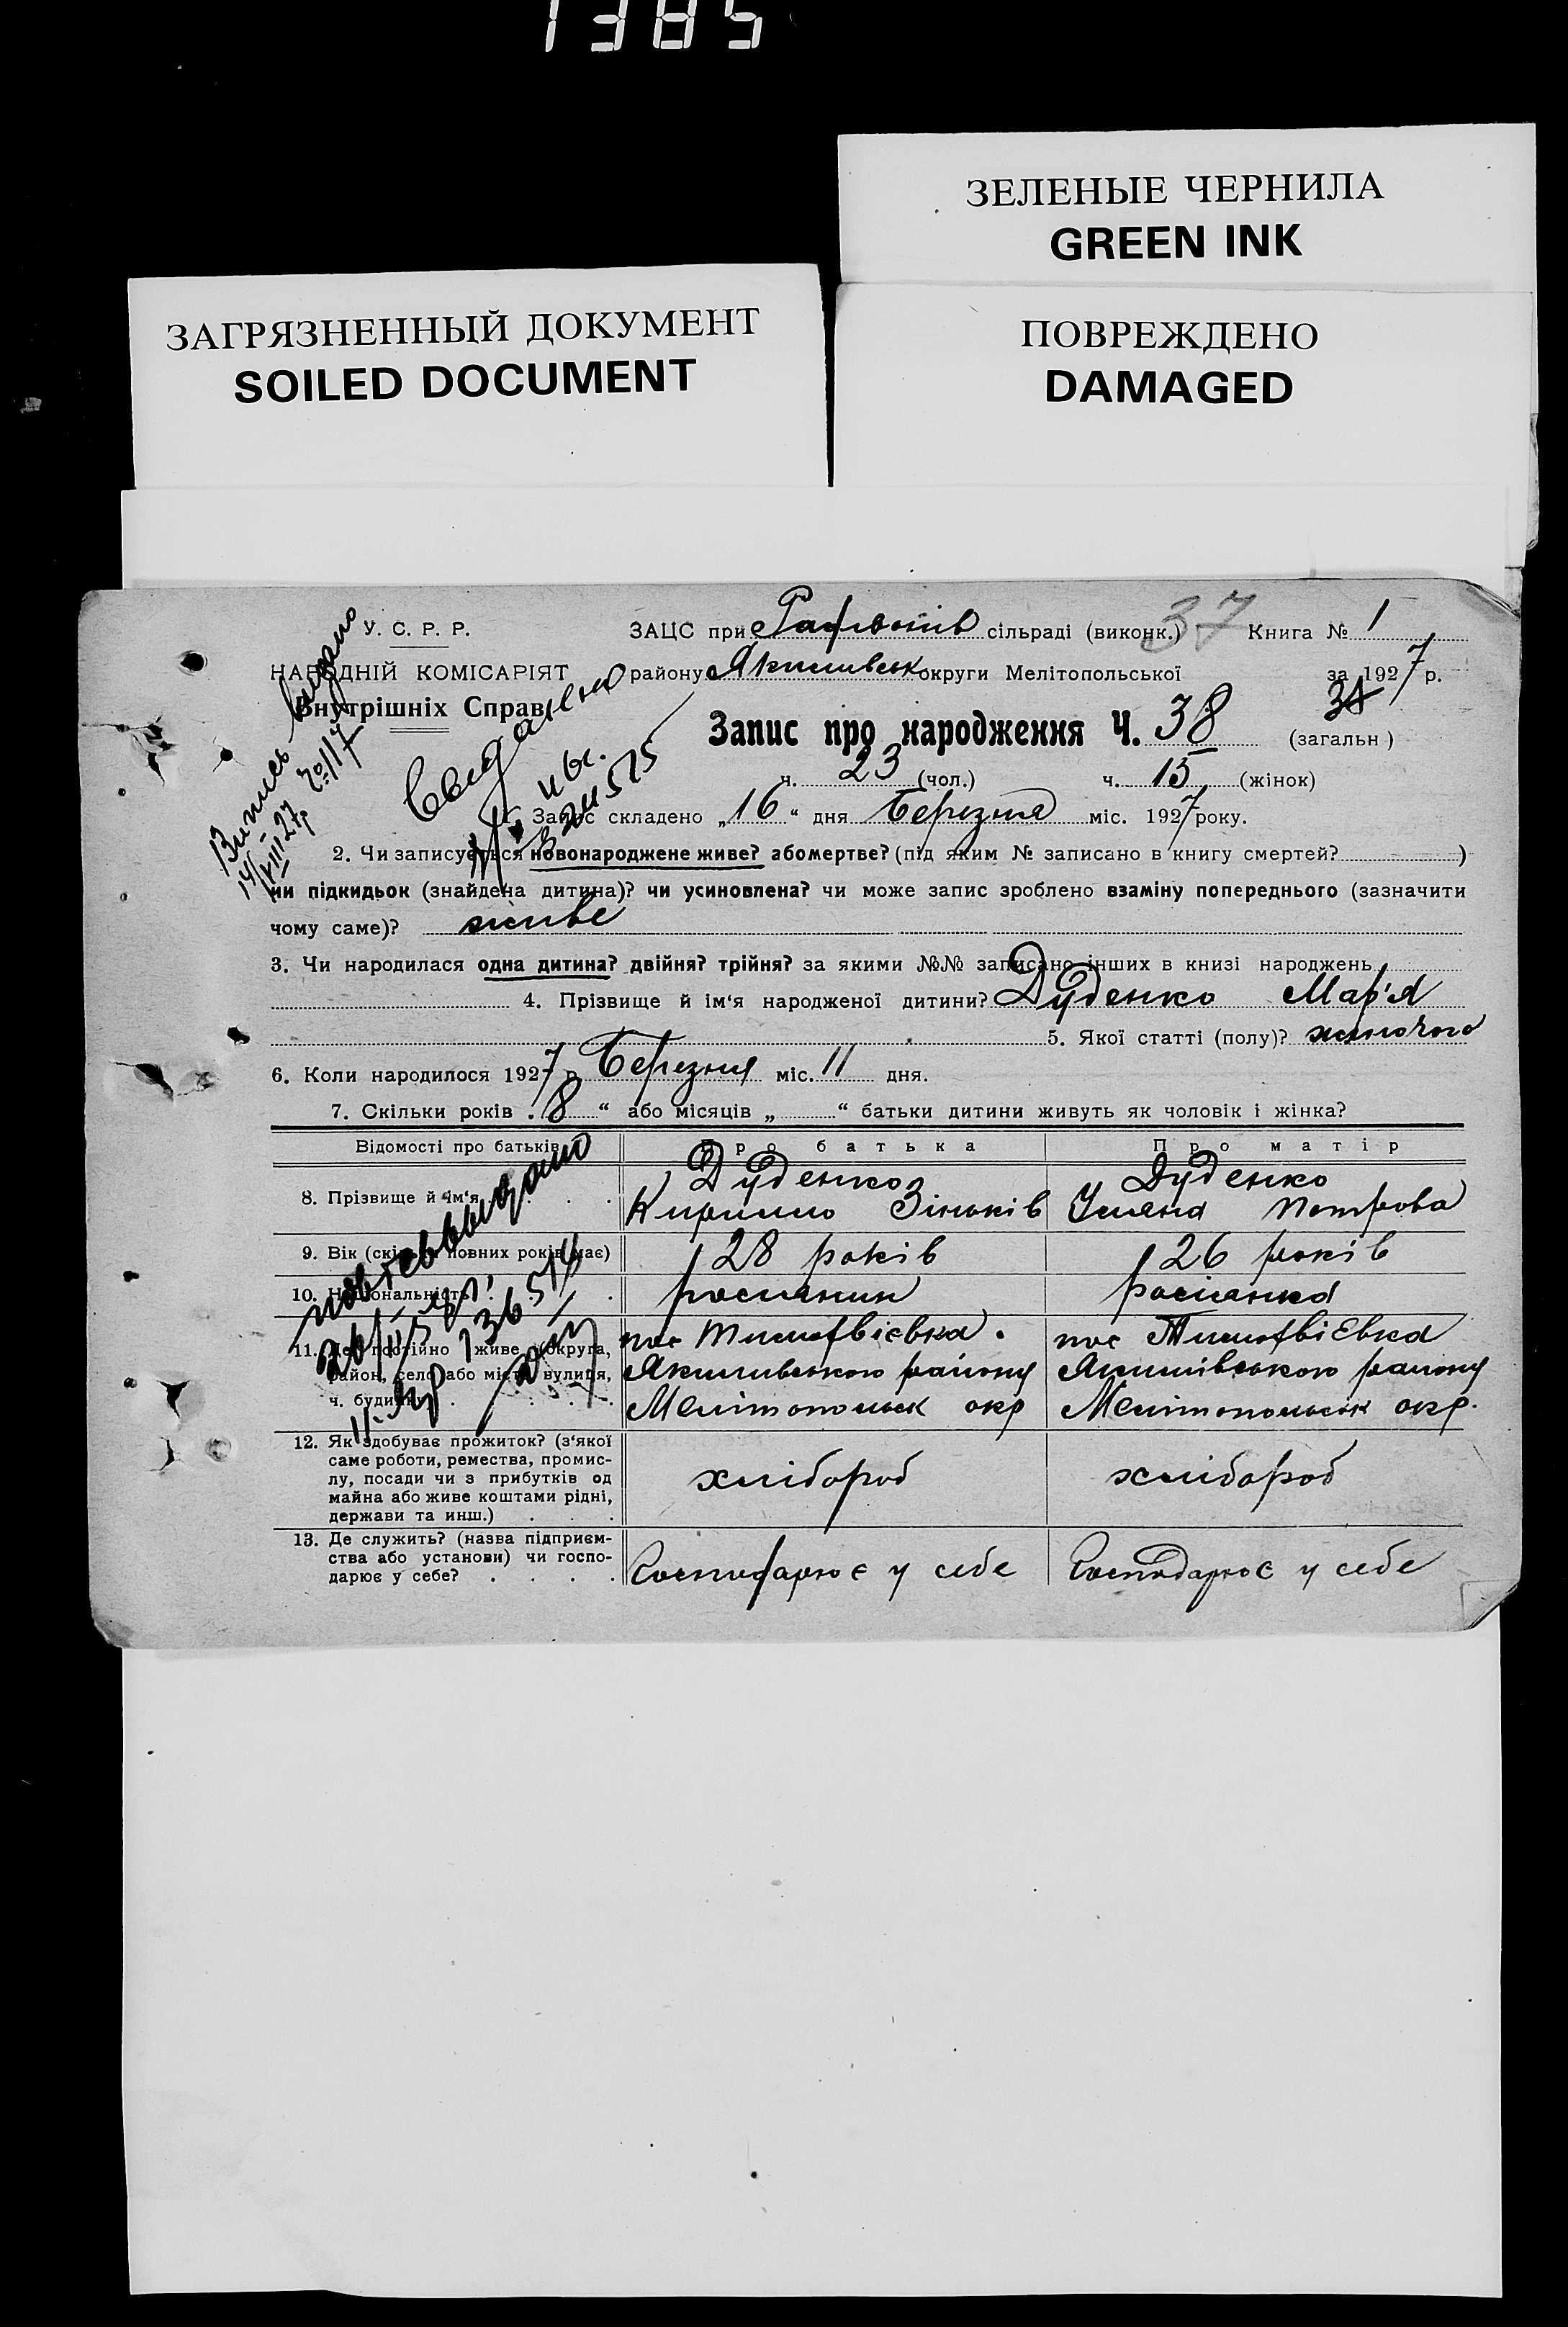 1385
ЗЕЛЕНЫЕ ЧЕРНИЛА
GREEN INK
ЗАГРЯЗНЕННЫЙ ДОКУМЕНТ
SOILED DOCUMENT
ПОВРЕЖДЕНО
DAMAGED
У. С. Р. Р.
НАРОДНІЙ КОМІСАРІЯТ
Внутрішніх Справ
Випись видано
ЗАЦС при сільраді (виконк.) 37 Книга № 1
району Якимівськ округи Мелітопольської за 1927 р.
Запис про народження Ч. 38 (загальн)
ч. 23 (чол.) ч. 15 (жінок)
1. Запис складено „16“ дня Березня міс. 1927 року.
2. Чи записується новонароджене живе? або мертве? (під яким № записано в книгу смертей? )
чи підкидьок (знайдена дитина)? чи усиновлена? чи може запис зроблено взаміну попереднього (зазначити
чому саме)? живе
3. Чи народилася одна дитина? двійня? трійня? за якими №№ записано інших в книзі народжень
4. Прізвище й ім‘я народженої дитини? Дуденко Мар'я
5. Якої статті (полу)? жіночого
6. Коли народилося 1927 р. Березня міс. 11 дня.
7. Скільки років „8“ або місяців „ “ батьки дитини живуть як чоловік і жінка?
Відомості про батьків Про батька Про матір
8. Прізвище й ім‘я Дуденко Дуденко
Кирилло Зіньків Уляна Петрова
9. Вік (скільки повних років має) 28 років 26 років
10. Національність росианин росіанка
11. Де постійно живе (округа, пос Тимофвієвка. пос Тимофвієвка
район, село або місто, вулиця, Якимивського району Якимівського району
ч. будинку) Мелітопольск окр Мелітопольськ окр.
12. Як здобуває прожиток? (з‘якої
саме роботи, ремества, промис-
лу, посади чи з прибутків од хлібороб хлібороб
майна або живе коштами рідні,
держави та инш.)
13. Де служить? (назва підприєм-
ства або установи) чи госпо- Господарює у себе Господарює у себе
дарює у себе?